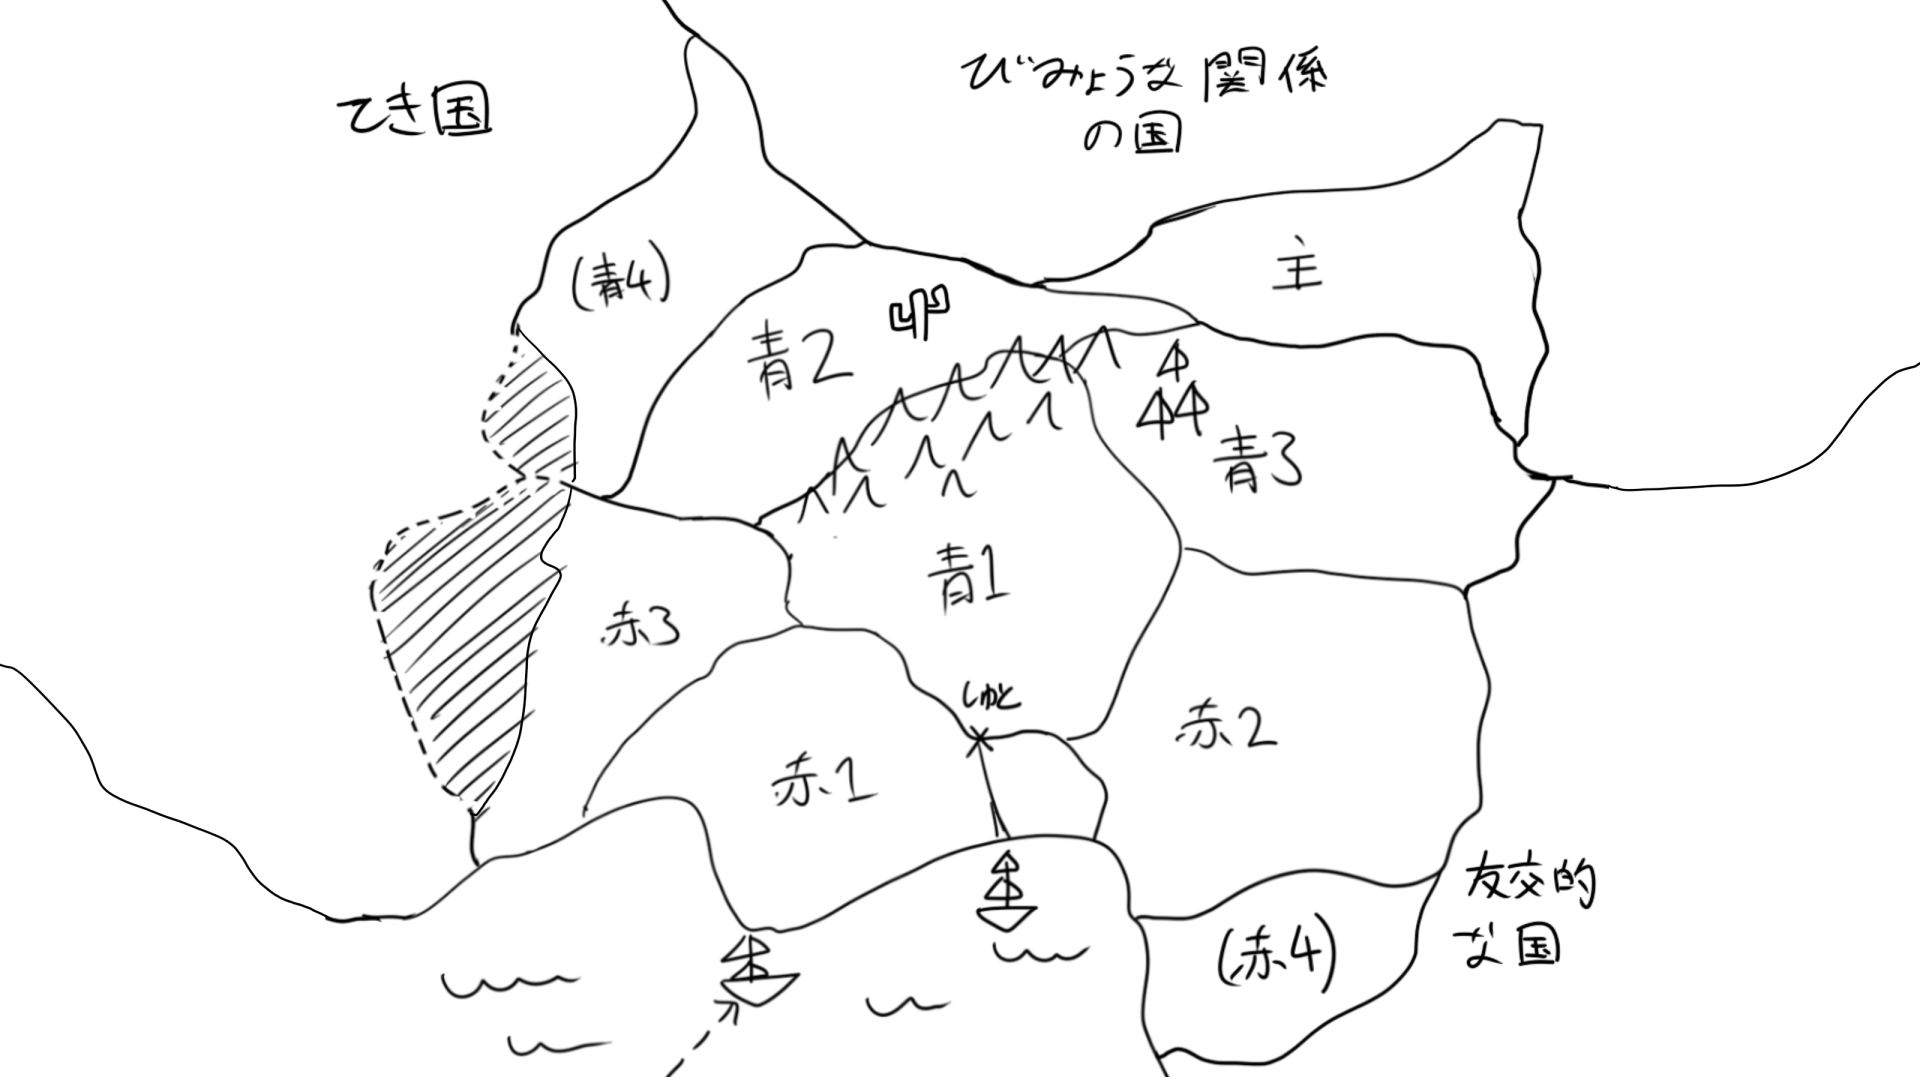 てき国
びみょうな関係
の国
主
(青4)
青2
青3
青1
赤3
しゅと
赤2
赤1
友交的
な国
(赤4)